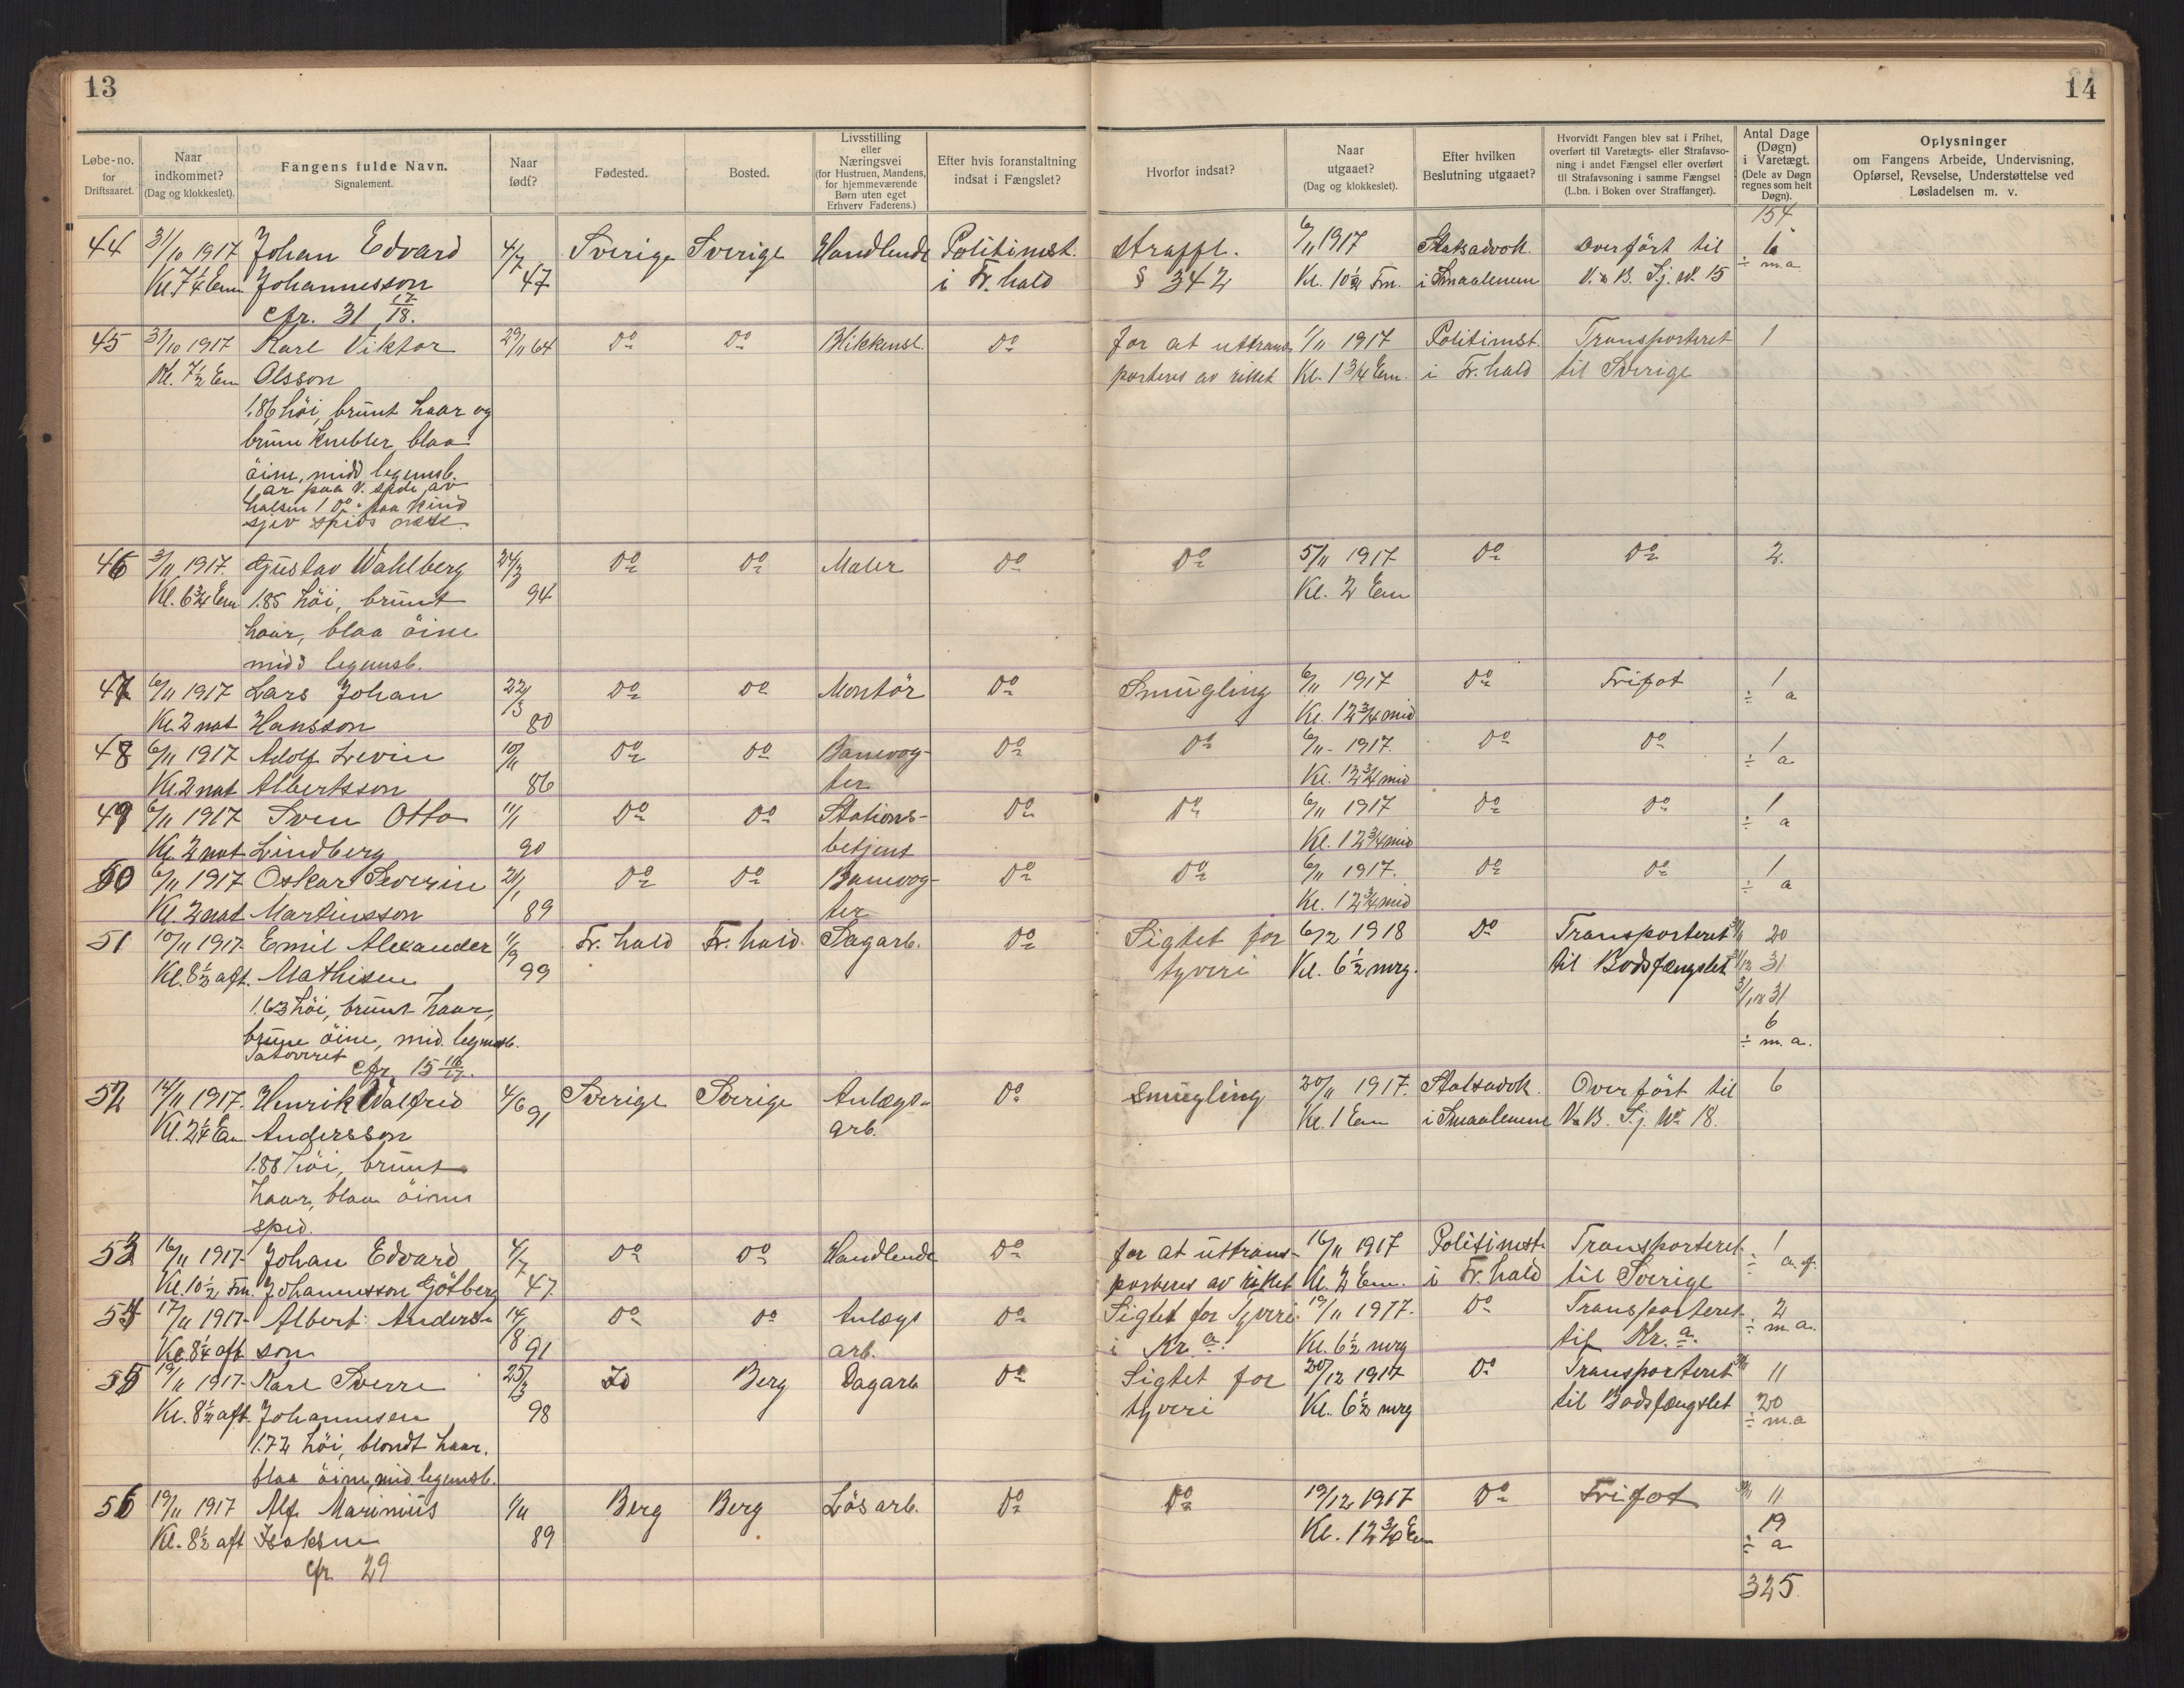 13
Løbe-no. for Driftsaaret.
Naar indkommet? (Dag og klokkeslet).
Fangens fulde Navn. Signalement.
Naar født?
Fødested.
Bosted.
Livsstilling eller Næringsvei (for Hustruen, Mandens, for hjemmeværende Børn uten eget Erhverv Faderens.)
Efter hvis foranstaltning indsat i Fængslet?
44 31/10 1917 Johan Edvard 4/7 Sverige Sverige Handlende Politimst.
Kl. 7 1/4 Em Johannesson 47 i Fr.hald
cfr. 31 17/18.
45 31/10 1917 Karl Viktor 29/11 64 Do Do Blikkensl. Do
Kl. 7 1/2 Em Olsson
1.86 höi, brunt haar og
brune knebler, blaa
öine, midd legemsb.
1 ar paa v. side av
halsen 1 Do paa kind
sjev spids næse.
46 3/11 1917. Gustav Wahlberg 24/3 Do Do Maler Do
Kl. 6 3/4 Em 1.85 höi, brunt 94
haar, blaa öine
midd legemsb.
47 6/11 1917 Lars Johan 22/3 Do Do Montör Do
Kl. 2 nat Hansson 80
48 6/11 1917 Adolf Levin 10/11 Do Do Banevog- Do
Kl. 2 nat Albertsson 86 ter
49 6/11 1917 Sven Otto 11/1 Do Do Stations- Do
Kl. 2 nat Lindberg 90 betjent
50 6/11 1917 Oskar Severin 21/1 Do Do Banevog- Do
Kl. 2 nat Martinsson 89 ter
51 10/11 1917. Emil Alexander 11/9 Fr. hald Fr. hald. Sagarb. Do
Kl. 8 1/2 aft. Mathisen 99
1.63 höi, brunt haar,
brune öine, mid. legemsb.
Tatoveret
cfr. 15 16/17.
52 14/11 1917. Henrik Walfrid 4/6 91 Sverige Sverige Anlægs- Do
Kl. 2 1/4 Em Andersson arb.
1.88 höi, brunt
haar, blaa öine
sped.
53 16/11 1917. Johan Edvard 4/7 Do Do Handlende Do
Kl. 10 1/2 Fm. Johannesson Götberg 47
54 17/11 1917. Albert Anders- 14/8 Do Do Anlægs Do
Kl. 8 1/4 aft son 91 arb.
55 19/11 1917. Karl Sverre 25/3 Id Berg Dagarb Do
Kl. 8 1/2 aft. Johannesen 98
1.72 höi, blondt haar,
blaa öine, mid legemsb.
56 19/11 1917 Alf Marinius 1/11 Berg Berg Lösarb. Do
Kl. 8 1/2 aft Isaksen 89
cfr. 29
14
Hvorfor indsat?
Naar utgaaet? (Dag og klokkeslet).
Efter hvilken Beslutning utgaaet?
Hvorvidt Fangen blev sat i Frihet, overført til Varetægts- eller Strafavsoning i andet Fængsel eller overført til Strafavsoning i samme Fængsel (L.bn. i Boken over Straffanger).
Antal Dage (Døgn) i Varetægt. (Dele av Døgn regnes som helt Døgn).
Oplysninger om Fangens Arbeide, Undervisning, Opførsel, Revselse, Understøttelse ved Løsladelsen m. v.
154
Straffl. 6/11 1917 Statsadvok. Overfört til 6
§ 342 Kl. 10 1/2 Fm. i Smaalenene V. & B. Fj. No 15 ÷ m.a.
for at uttrans 1/11 1917 Politimst. Transporteret 1
porteres av riket Kl. 1 3/4 Em. i Fr.hald til Sverige
Do 5/11 1917 Do Do 2.
Kl. 2 Em
Smugling 6/11 1917 Do Frifot 1
Kl. 12 3/4 mid ÷ a
Do 6/11 - 1917. Do Do 1
Kl. 12 3/4 mid ÷ a
Do 6/11 1917 Do Do 1
Kl. 12 3/4 mid ÷ a
Do 6/11 1917. Do Do 1
Kl. 12 3/4 mid ÷ a
Sigtet for 6/2 1918 Do Transporteret 30/11 20
tyveri Kl. 6 1/2 mrg. til Bodsfængslet 31/12 31
31/1 18 31
6
÷ m. a.
Smugling 20/11 1917. Statsadvok. Overfört til 6
Kl. 1 Em i Smaalenene V. & B. Fj. No 18.
for at uttrans- 16/11 1917 Politimst. Transporteret 1
porteres av riket Kl. 2 Em. i Fr. hald til Sverige ÷ a. f.
Sigtet for Tyveri 19/11 1917. Do Transporteret 2
i Kr.a. Kl. 6 1/2 mrg til Kr.a. ÷ m. a.
Sigtet for 20/12 1917 Do Transporteret 30/11 11
tyveri Kl. 6 1/2 mrg til Bodsfængslet 20
÷ m.a
Do 19/12 1917 Do Frifot 30/11 11
Kl. 12 3/4 Em 19
÷ a
325